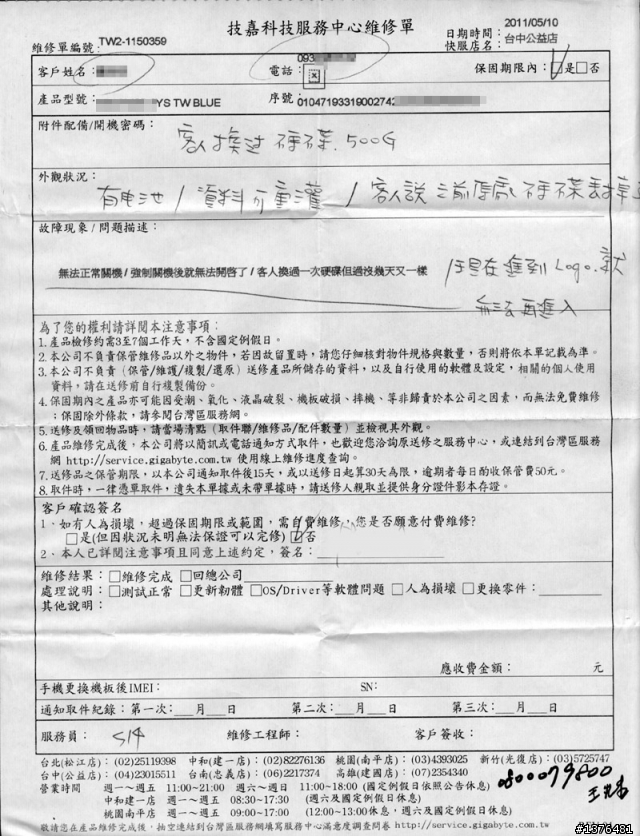 技嘉科技服務中心維修單
維修單編號: TW2-1150359
日期時間: 2011/05/10
快服店名: 台中公益店
客戶姓名:
電話: 093
保固期限內: □是□否
產品型號: YS TW BLUE
序號: 01047193319002742
附件配備/開機密碼:
客人換过硬碟.500G
外觀狀況:
有电池 / 資料可重灌 / 客人說之前原廠硬碟丟掉
故障現象/問題描述:
無法正常關機/強制關機後就無法開啓了/客人換過一次硬碟但過沒幾天又一樣
/于是在進到Logo.就
無法再進入
為了您的權利請詳閱本注意事項:
1.產品檢修約需3至7個工作天,不含國定例假日。
2.本公司不負責保管維修品以外之物件,若因故留置時,請您仔細核對物件規格與數量,否則將依本單記載為準。
3.本公司不負責(保管/維護/複製/還原)送修產品所儲存的資料,以及自行使用的軟體及設定,相關的個人使用
資料,請在送修前自行複製備份。
4.保固期內之產品亦可能因受潮、氧化、液晶破裂、機板破損、摔機、等非歸責於本公司之因素,而無法免費維修
;保固除外條款,請參閱台灣區服務網。
5.送修及領回物品時,請當場清點(取件聯/維修品/配件數量)並檢視其外觀。
6.產品維修完成後,本公司將以簡訊或電話通知方式取件,也歡迎您洽詢原送修之服務中心,或連結到台灣區服務
網 http://service.gigabyte.com.tw 使用線上維修進度查詢。
7.送修品之保管期限,以本公司通知取件後15天,或以送修日起算30天為限,逾期者每日酌收保管費50元。
8.取件時,一律憑單取件,遺失本單據或未帶單據時,請送修人親取並提供身分證件影本存證。
客戶確認簽名
1.如有人為損壞,超過保固期限或範圍,需自費維修,您是否願意付費維修?
□是(但因狀況未明無法保證可以完修) □否
2.本人已詳閱注意事項且同意上述約定,簽名:
維修結果: □維修完成 □回總公司
處理說明: □測試正常 □更新韌體 □OS/Driver等軟體問題 □人為損壞 □更換零件:
其他說明:
應收費金額: 元
手機更換機板後IMEI: SN:
通知取件紀錄: 第一次:___月___日 第二次:___月___日 第三次:___月___日
服務員: 維修工程師: 客戶簽收:
台北(松江店): (02)25119398 中和(建一店): (02)82276136 桃園(南平店): (03)4393025 新竹(光復店): (03)5725747
台中(公益店): (04)23015511 台南(忠義店): (06)2217374 高雄(建國店): (07)2354340
0800079800
營業時間 週一~週五 11:00~21:00 週六~週日 11:00~18:00 (國定例假日依照公告休息)
中和建一店 週一~週五 08:30~17:30 (週六及國定例假日休息)
桃園南平店 週一~週五 09:00~17:00 (12:00~13:00休息,週六及國定例假日休息)
敬請您在產品維修完成後,抽空連結到台灣區服務網填寫服務中心滿意度調查問卷 http://service.gigabyte.com.tw
#1376481